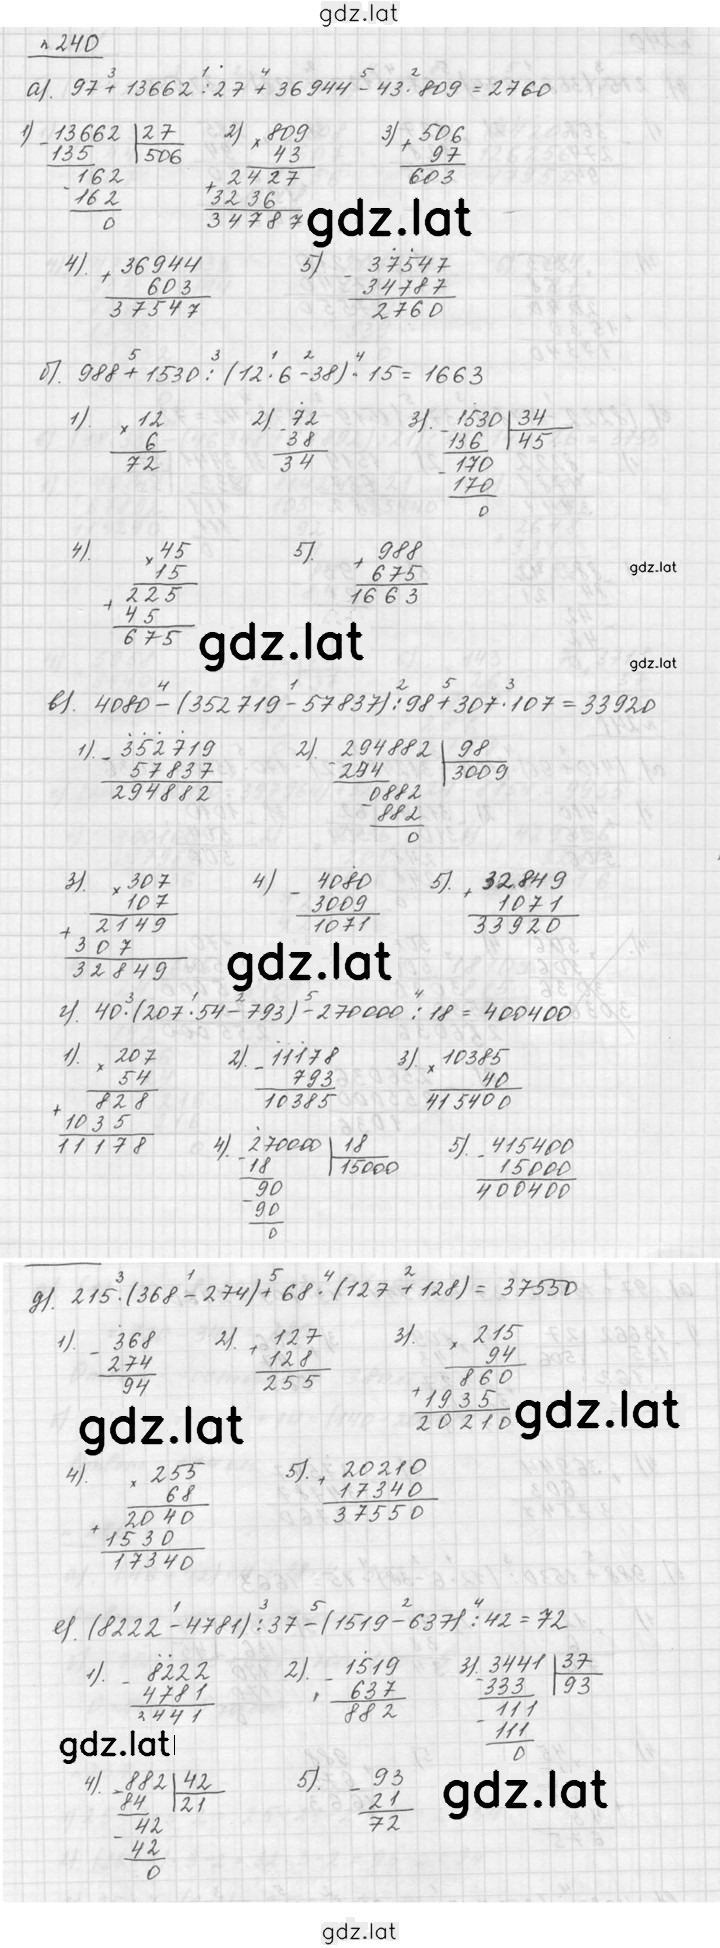 gdz.lat
№240
а). 97 + 13662 : 27 + 36944 - 43 · 809 = 2760
3 1 4 5 2
1) 13662 | 27 2) × 809 3) + 506
135 506 43 97
162 + 2427 603
162 3236
0 34787
gdz.lat
4). + 36944 5) - 37547
603 34787
37547 2760
б). 988 + 1530 : (12 · 6 - 38) · 15 = 1663
5 3 1 2 4
1). × 12 2) - 72 3). - 1530 | 34
6 38 136 45
72 34 - 170
170
0
4). × 45 5). + 988
15 675
225 1663
+ 45
675
gdz.lat
gdz.lat
gdz.lat
в). 4080 - (352719 - 57837) : 98 + 307 · 107 = 33920
4 1 2 5 3
1) - 352719 2). - 294882 | 98
57837 294 3009
294882 0882
- 882
0
3). × 307 4) - 4080 5). + 32849
107 3009 1071
+ 2149 1071 33920
307
32849
gdz.lat
г). 40 · (207 · 54 - 793) - 270000 : 18 = 400400
3 1 2 5 4
1). × 207 2). - 11178 3) × 10385
54 793 40
828 10385 415400
+ 1035
11178
4) - 270000 | 18 5). - 415400
18 15000 15000
90 400400
- 90
0
д). 215 · (368 - 274) + 68 · (127 + 128) = 37550
3 1 5 4 2
1). - 368 2). + 127 3). × 215
274 128 94
94 255 860
+ 1935
20210
gdz.lat
gdz.lat
4). × 255 5). + 20210
68 17340
2040 37550
+ 1530
17340
е). (8222 - 4781) : 37 - (1519 - 637) : 42 = 72
1 3 5 2 4
1). - 8222 2). - 1519 3). - 3441 | 37
4781 637 333 93
3441 882 - 111
111
0
gdz.lat
4). - 882 | 42 5). - 93
84 21 21
- 42 72
42
0
gdz.lat
gdz.lat